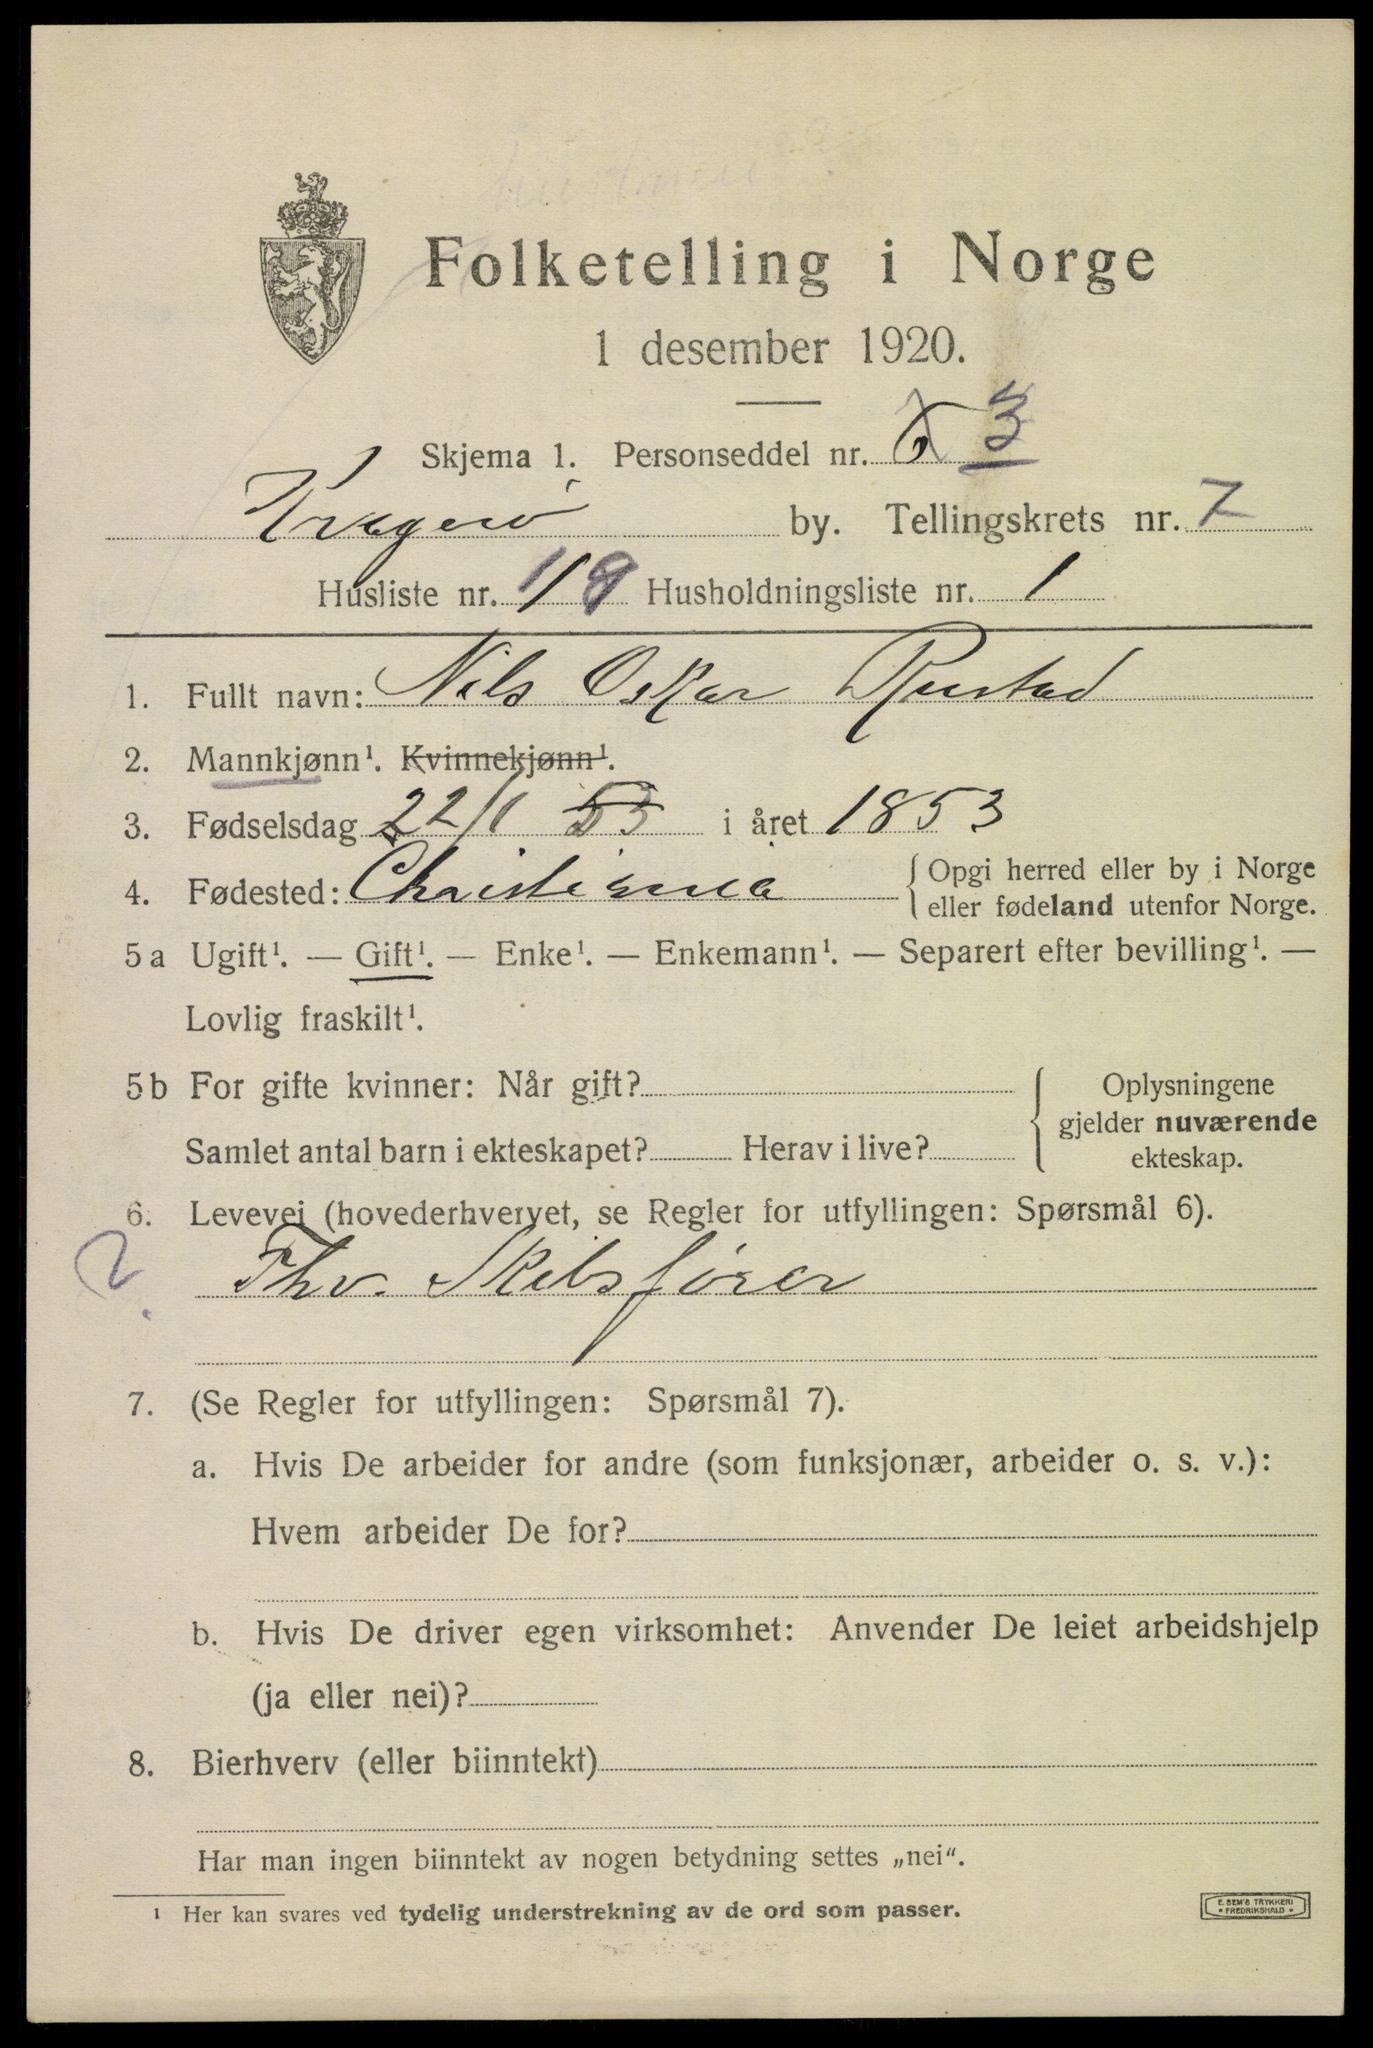 Folketelling i Norge
1 desember 1920.
Skjema 1. Personseddel nr. 6 3
Kragerø by. Tellingskrets nr. 7
Husliste nr. 118 Husholdningsliste nr. 1
1. Fullt navn: Nils Oskar Rustad
2. Mannkjønn¹. Kvinnekjønn¹.
3. Fødselsdag 22/1 53 i året 1853
4. Fødested: Christiania { Opgi herred eller by i Norge
eller fødeland utenfor Norge.
5a Ugift¹. — Gift¹. — Enke¹. — Enkemann¹. — Separert efter bevilling¹. —
Lovlig fraskilt¹.
5b For gifte kvinner: Når gift? { Oplysningene
gjelder nuværende
Samlet antal barn i ekteskapet? Herav i live? ekteskap.
6. Levevei (hovederhvervet, se Regler for utfyllingen: Spørsmål 6).
? Fhv. Skibsfører
7. (Se Regler for utfyllingen: Spørsmål 7).
a. Hvis De arbeider for andre (som funksjonær, arbeider o. s. v.):
Hvem arbeider De for?
b. Hvis De driver egen virksomhet: Anvender De leiet arbeidshjelp
(ja eller nei)?
8. Bierhverv (eller biinntekt)
Har man ingen biinntekt av nogen betydning settes „nei“.
¹ Her kan svares ved tydelig understrekning av de ord som passer.
E. SEM'S TRYKKERI
• FREDRIKSHALD •